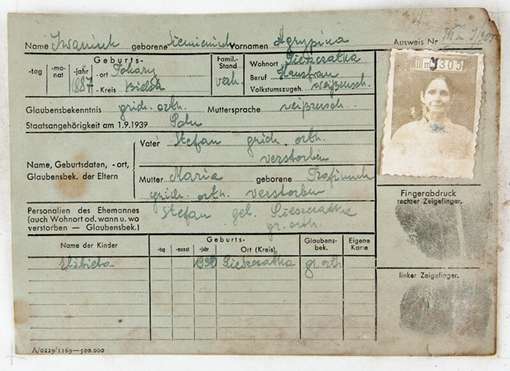 Name Iwaniuk geborene Siemieniuk Vornamen Agrypina Ausweis Nr.
Geburts-
-tag -mo-nat -jahr -ort Tokary
1887 -Kreis Bielsk
Famil.-Stand verh.
Wohnort Pieszczatka
Beruf Hausfrau
Volkstumszugeh. weißrussch.
Glaubensbekenntnis griech. orth. Muttersprache weißrussch.
Staatsangehörigkeit am 1.9.1939 Polen
Name, Geburtsdaten, -ort, Glaubensbek. der Eltern
Vater Stefan griech. orth.
verstorben
Mutter Maria geborene
griech. orth. verstorben
Personalien des Ehemannes
(auch Wohnort od. wann u. wo
verstorben — Glaubensbek.)
Stefan geb. Pieszczatka
gr. orth.
Fingerabdruck
rechter Zeigefinger.
linker Zeigefinger.
Name der Kinder
Geburts-
-tag -monat -jahr Ort (Kreis)
Glaubens-bek.
Eigene Karte
Elżbieta 1930 Pieszczatka gr. orth.
A/0229/1169—500.000